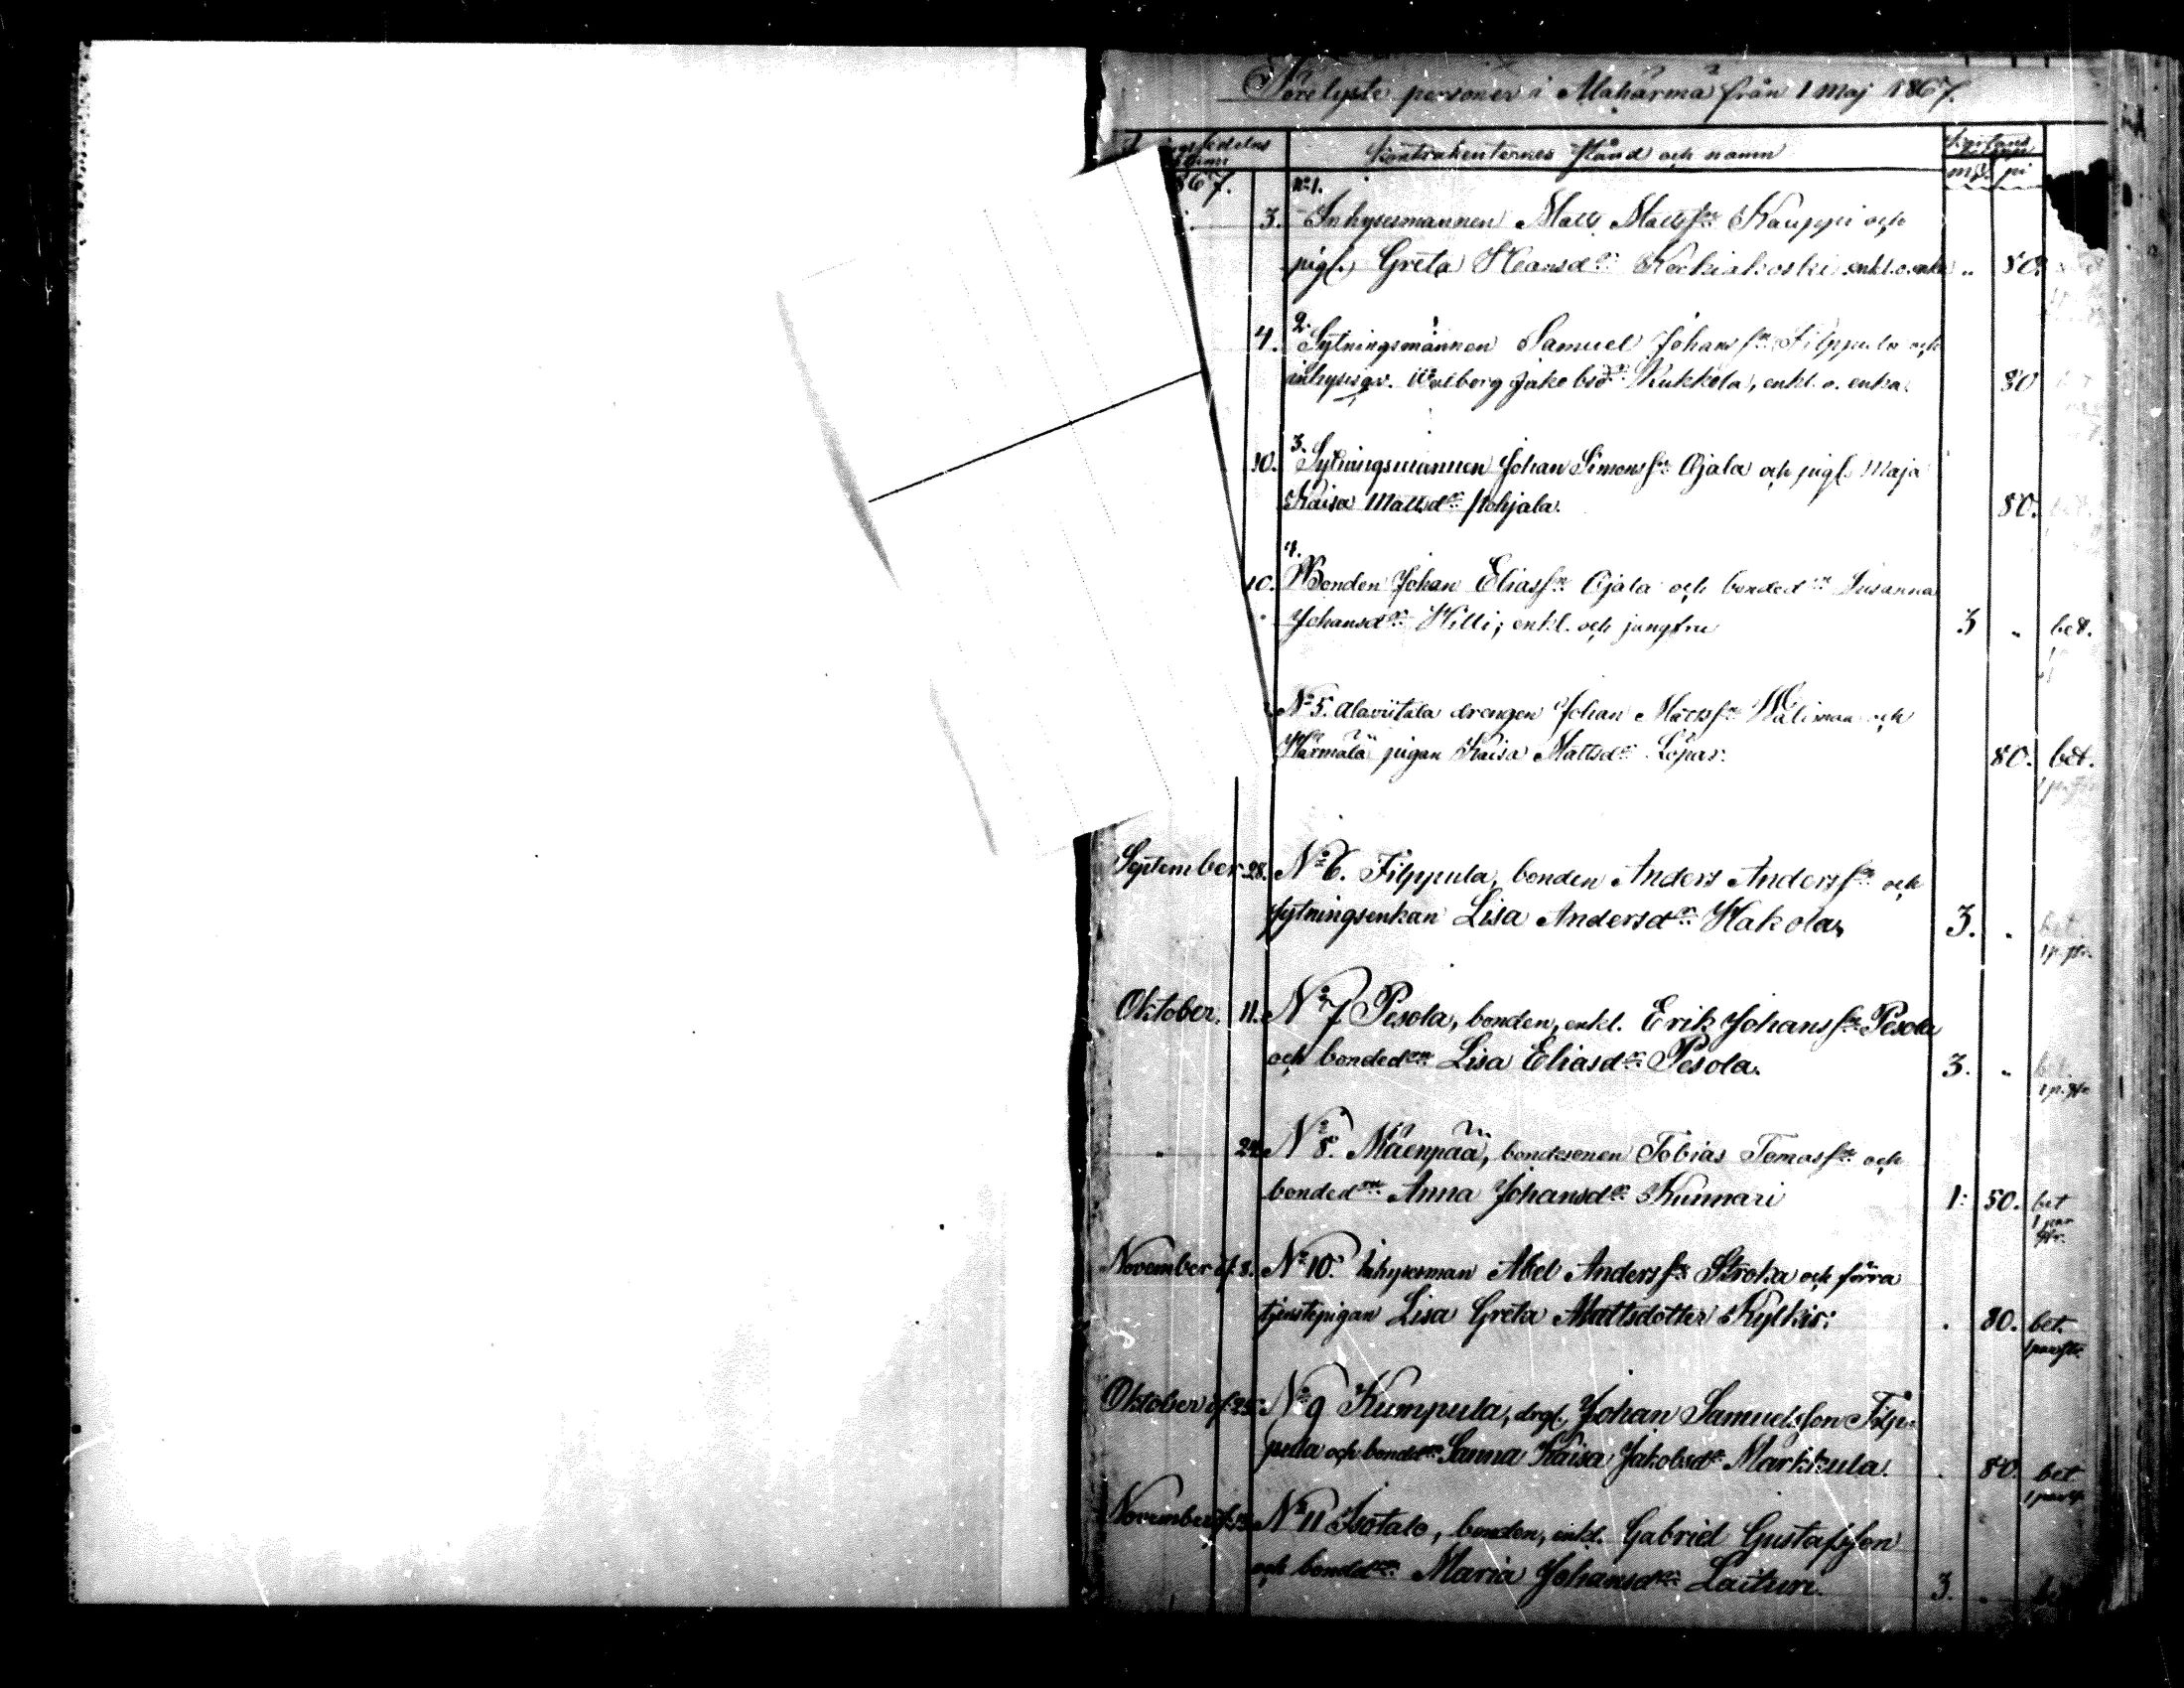 Förelyste personer i Alahärmä från 1 Maj 1867.
Kontrahenternes stånd och namn
m/k pi
867. No 1.
3. Inhysesmannen Matts Mattss:n Kauppi och
pigf. Greta Hansd:r Kerkiakoski enkl. o. enka " 80.
4. 2. Sytningsmannen Samuel Johanss:n Filppula och
inhysesqv. Walborg Jakobsd:r Rukkola, enkl. o. enka. 80
10. 3. Sytningsmannen Johan Simonss:n Ojala och pigf. Maja
Kaisa Mattsd:r Pohjala. 80.
10. 4. Bonden Johan Eliass:n Ojala och bonded:rn Susanna
Johansd:r Hilli; enkl. och jungfru 3 " bet.
No 5. Alaviitala drengen Johan Mattss:n Walimaa och
Härmälä pigan Kaisa Mattsd:r Löpar. 80. bet.
September 28. No 6. Filppula, bonden Anders Anderss:n och
sytningsenkan Lisa Andersd:r Hakola, 3. " bet
Oktober. 11. No 7 Pesola, bonden, enkl. Erik Johanss:n Pesola
och bonded:rn Lisa Eliasd:r Pesola. 3. " bet
" 24. No 8. Mäenpää, bondesonen Tobias Tomass:n och
bonded:rn Anna Johansd:r Kunnari 1: 50. bet
1 par
November d. 8. No 10. Inhysesman Abel Anderss:n Ströka och förra
tjenstepigan Lisa Greta Mattsdotter Kylkis; . 80. bet.
Oktober d. 25. No 9 Kumpula, drgf., Johan Samuelsson Filp-
pula och bonded:rn Sanna Kaisa Jakobsd:r Markkula. . 80. bet
November No 11 Isotalo, bonden, enkl. Gabriel Gustafsson
och bonded:rn Maria Johansd:r Laituri. 3. "